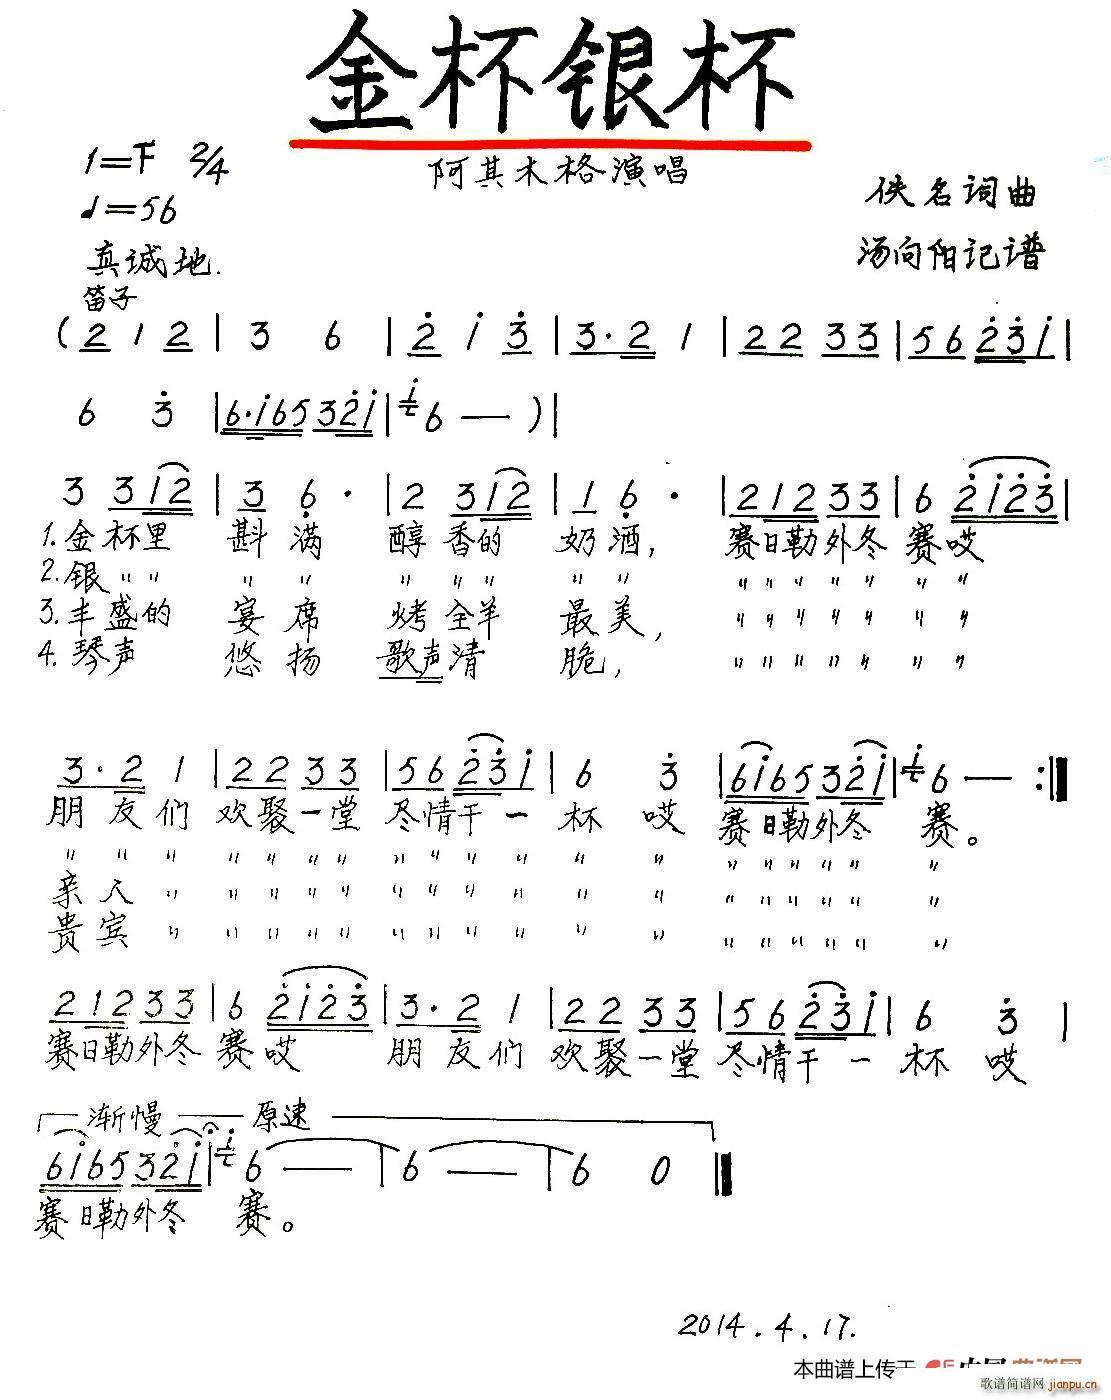 金杯银杯
1=F 2/4
阿其木格演唱
佚名词曲
♩=56
汤向阳记谱
真诚地.
笛子
(2 1 2 | 3 6 | 2̇ i 3̇ | 3·2 1 | 22 33 | 56 2̇3̇i |
6 3̇ | 6·i65 32̇i | i 6 — ) |
3 312 | 3 6̣· | 2 312 | 1 6̣· | 21233 | 6 2̇i2̇3̇ |
1.金杯里 斟满 醇香的 奶酒, 赛日勒外冬 赛哎
2.银〃〃 〃〃 〃〃〃 〃〃 〃〃〃〃〃 〃〃
3.丰盛的 宴席 烤全羊 最美, 〃〃〃〃〃 〃〃
4.琴声 悠扬 歌声清 脆, 〃〃〃〃〃 〃〃
3·2 1 | 22 33 | 56 2̇3̇i | 6 3̇ | 6i65 32̇i | i 6 — :|
朋友们 欢聚一堂 尽情干一 杯哎 赛日勒外冬 赛。
〃〃〃 〃〃〃〃 〃〃〃〃 〃〃 〃〃〃〃〃 〃
亲人〃 〃〃〃〃 〃〃〃〃 〃〃 〃〃〃〃〃 〃
贵宾〃 〃〃〃〃 〃〃〃〃 〃〃 〃〃〃〃〃 〃
21233 | 6 2̇i2̇3̇ | 3·2 1 | 22 33 | 56 2̇3̇i | 6 3̇ |
赛日勒外冬 赛哎 朋友们 欢聚一堂 尽情干一 杯哎
渐慢 — 原速
6i65 32̇i | i 6 — | 6 — | 6 0 ‖
赛日勒外冬 赛。
2014.4.17.
本曲谱上传于
歌谱简谱网 jianpu.cn